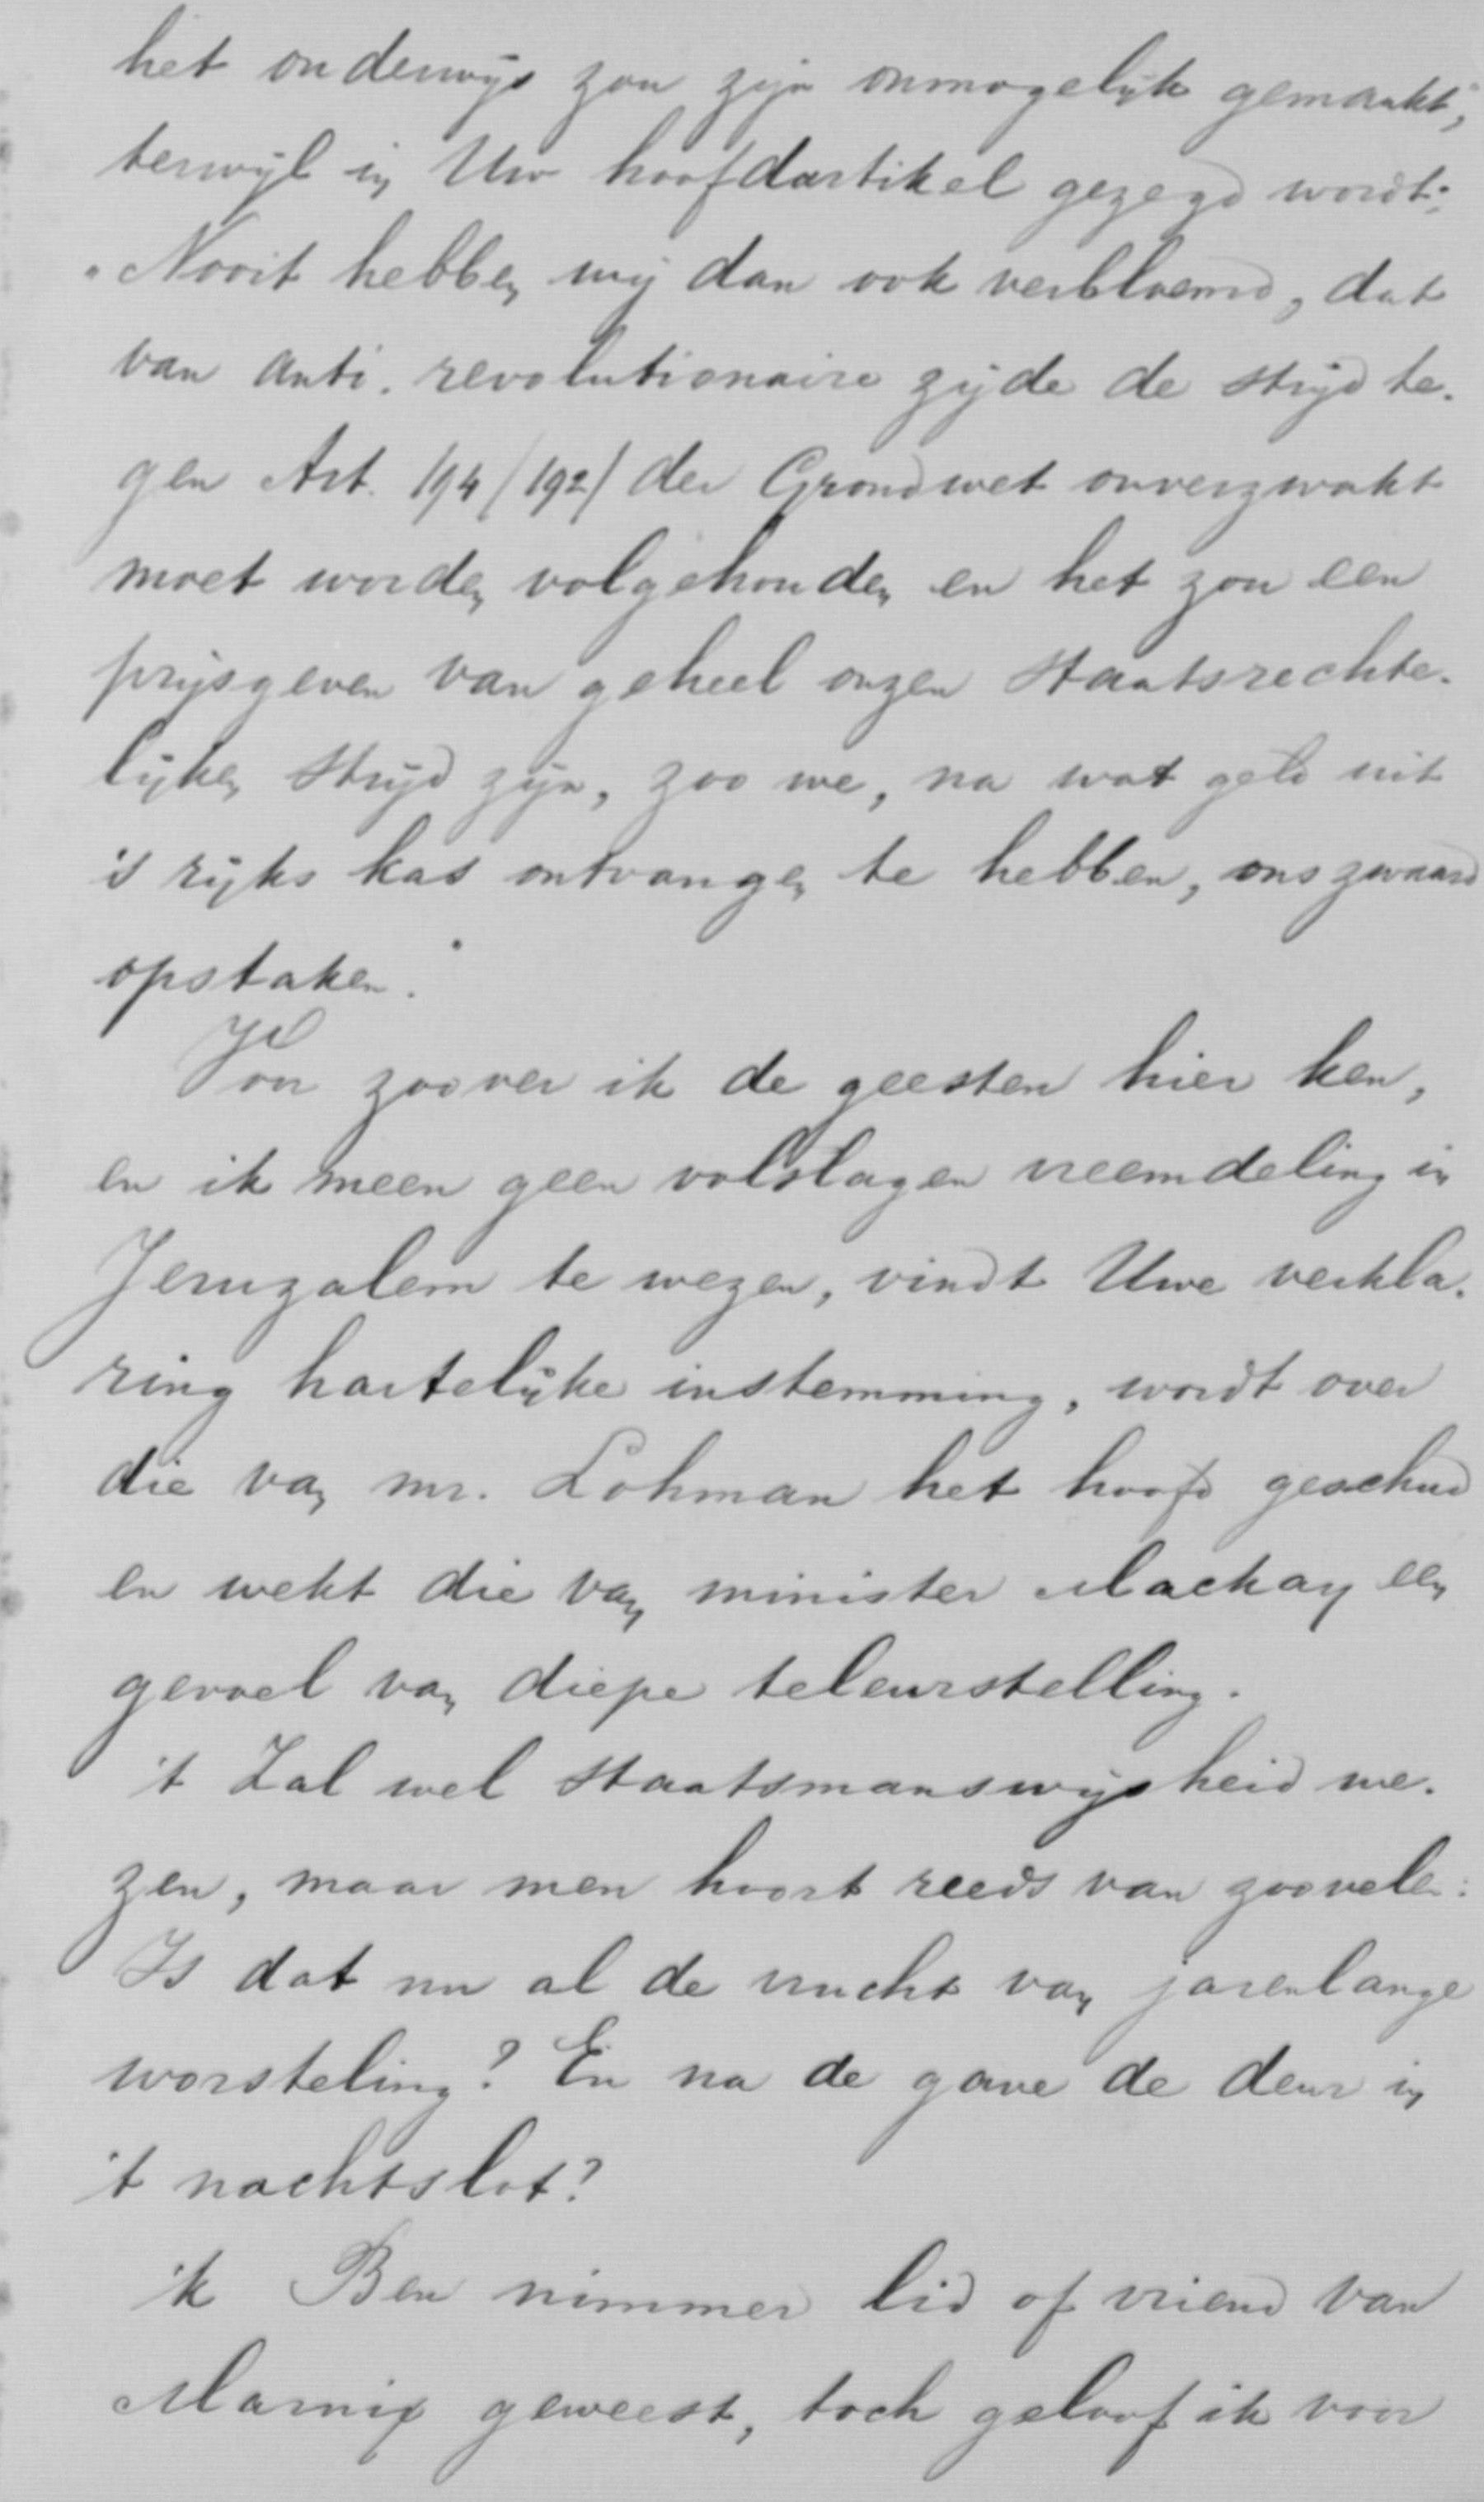 het onderwijs zou zijn onmogelijk gemaakt,
terwijl in Uw hoofdartikel gezegd wordt:
"Nooit hebben wij dan ook verbloemd, dat
van anti-revolutionaire zijde de strijd te-
gen Art. 194/192/ der Grondwet onverzwakt
moet worden volgehouden en het zou een
prijsgeven van geheel onzen Staatsrechte-
lijken Strijd zijn, zoo we, na wat geld uit
's rijks kas ontvangen te hebben, ons zwaard
opstaken."
Voor zoover ik de geesten hier ken,
en ik meen geen volslagen vreemdeling in
Jeruzalem te wezen, vindt Uwe verkla-
ring hartelijke instemming, wordt over
die van mr. Lohman het hoofd geschud
en wekt die van minister Mackay een
gevoel van diepe teleurstelling.
't Zal wel Staatsmanswijsheid we-
zen, maar men hoort reeds van zoovelen:
Is dat nu al de vrucht van jarenlange
worsteling? En na de gave de deur in
't nachtslot?
ik Ben nimmer lid of vriend van
Marnix geweest, toch geloof ik voor